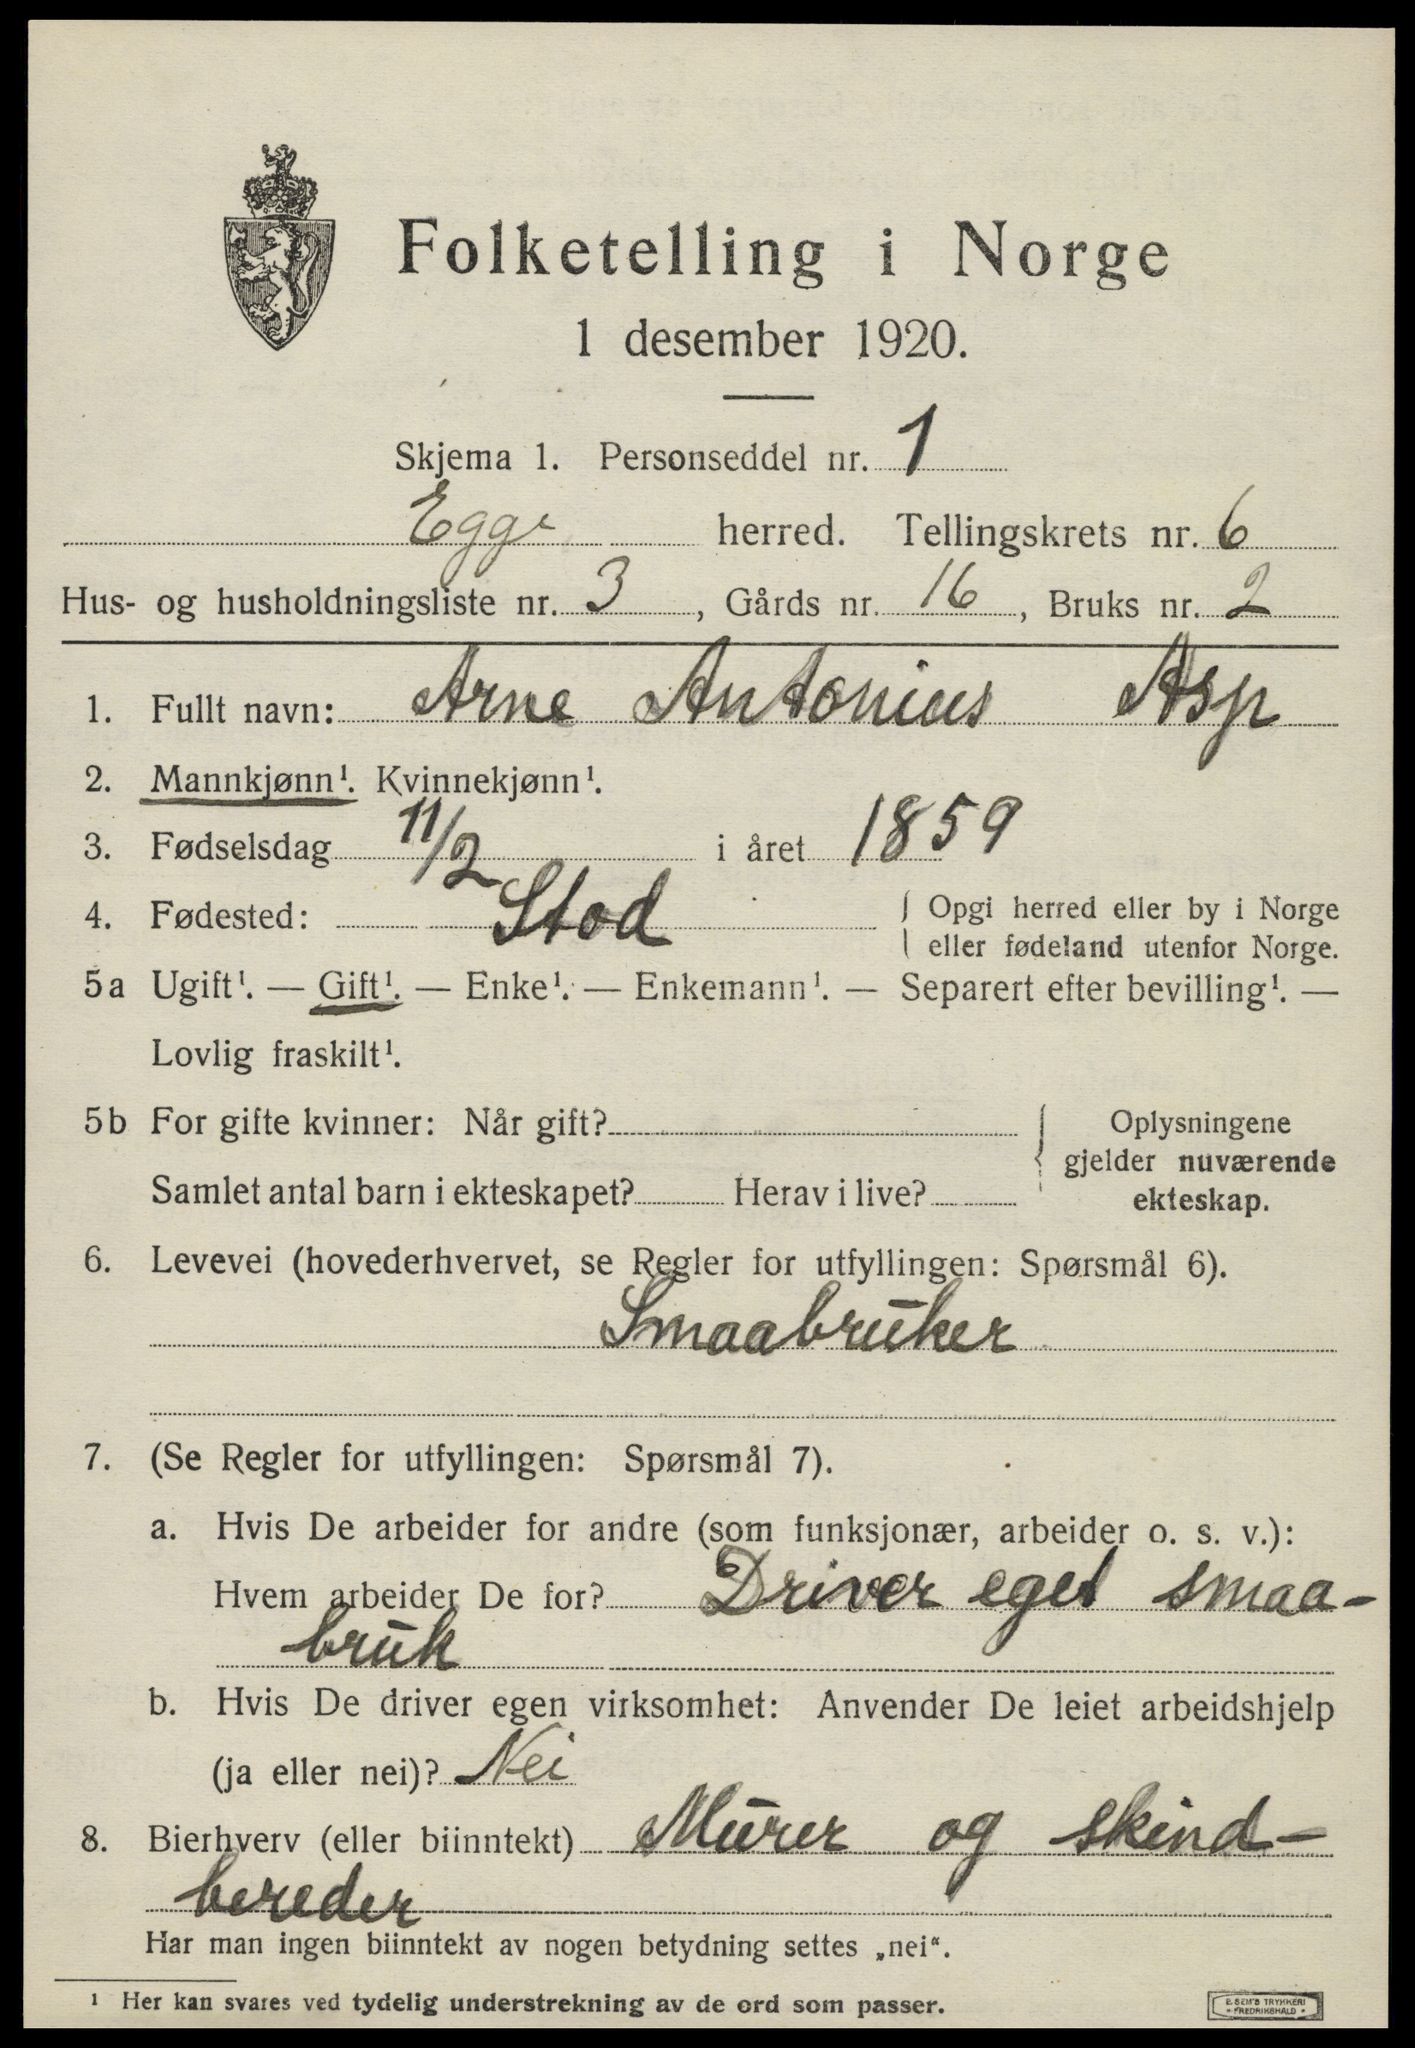 Folketelling i Norge
1 desember 1920.
Skjema 1. Personseddel nr. 1
Egge herred. Tellingskrets nr. 6
Hus- og husholdningsliste nr. 3, Gårds nr. 16, Bruks nr. 2
1. Fullt navn: Arne Antonius Asp
2. Mannkjønn¹. Kvinnekjønn¹.
3. Fødselsdag 11/2 i året 1859
4. Fødested: Stod { Opgi herred eller by i Norge
eller fødeland utenfor Norge.
5a Ugift¹. — Gift¹. — Enke¹. — Enkemann¹. — Separert efter bevilling¹. —
Lovlig fraskilt¹.
5b For gifte kvinner: Når gift? { Oplysningene
gjelder nuværende
Samlet antal barn i ekteskapet? Herav i live? ekteskap.
6. Levevei (hovederhvervet, se Regler for utfyllingen: Spørsmål 6).
Smaabruker
7. (Se Regler for utfyllingen: Spørsmål 7).
a. Hvis De arbeider for andre (som funksjonær, arbeider o. s. v.):
Hvem arbeider De for? Driver eget smaa-
bruk
b. Hvis De driver egen virksomhet: Anvender De leiet arbeidshjelp
(ja eller nei)? Nei
8. Bierhverv (eller biinntekt) Murer og skind-
bereder
Har man ingen biinntekt av nogen betydning settes „nei“.
¹ Her kan svares ved tydelig understrekning av de ord som passer.
E. SEM'S TRYKKERI
- FREDRIKSHALD -